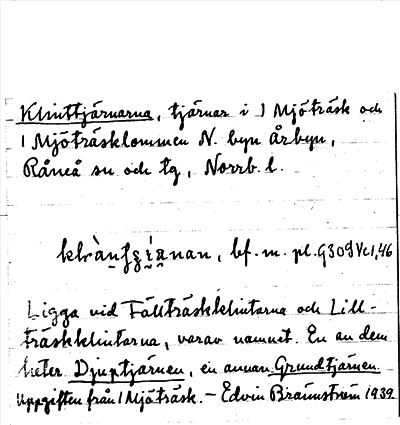 Klinttjärnarna, tjärnar i 1 Mjöträsk och
1 Mjöträsklommen N. byn Årbyn,
Råneå sn och tg, Norrb. l.
bf. m. pl. G309 Vc1,46
Ligga vid Fällträskklintarna och Lill-
träskklintarna, varav namnet. En av dem
heter Djuptjärnen, en annan Grundtjärnen.
Uppgiften från 1 Mjöträsk. – Edvin Brännström 1939